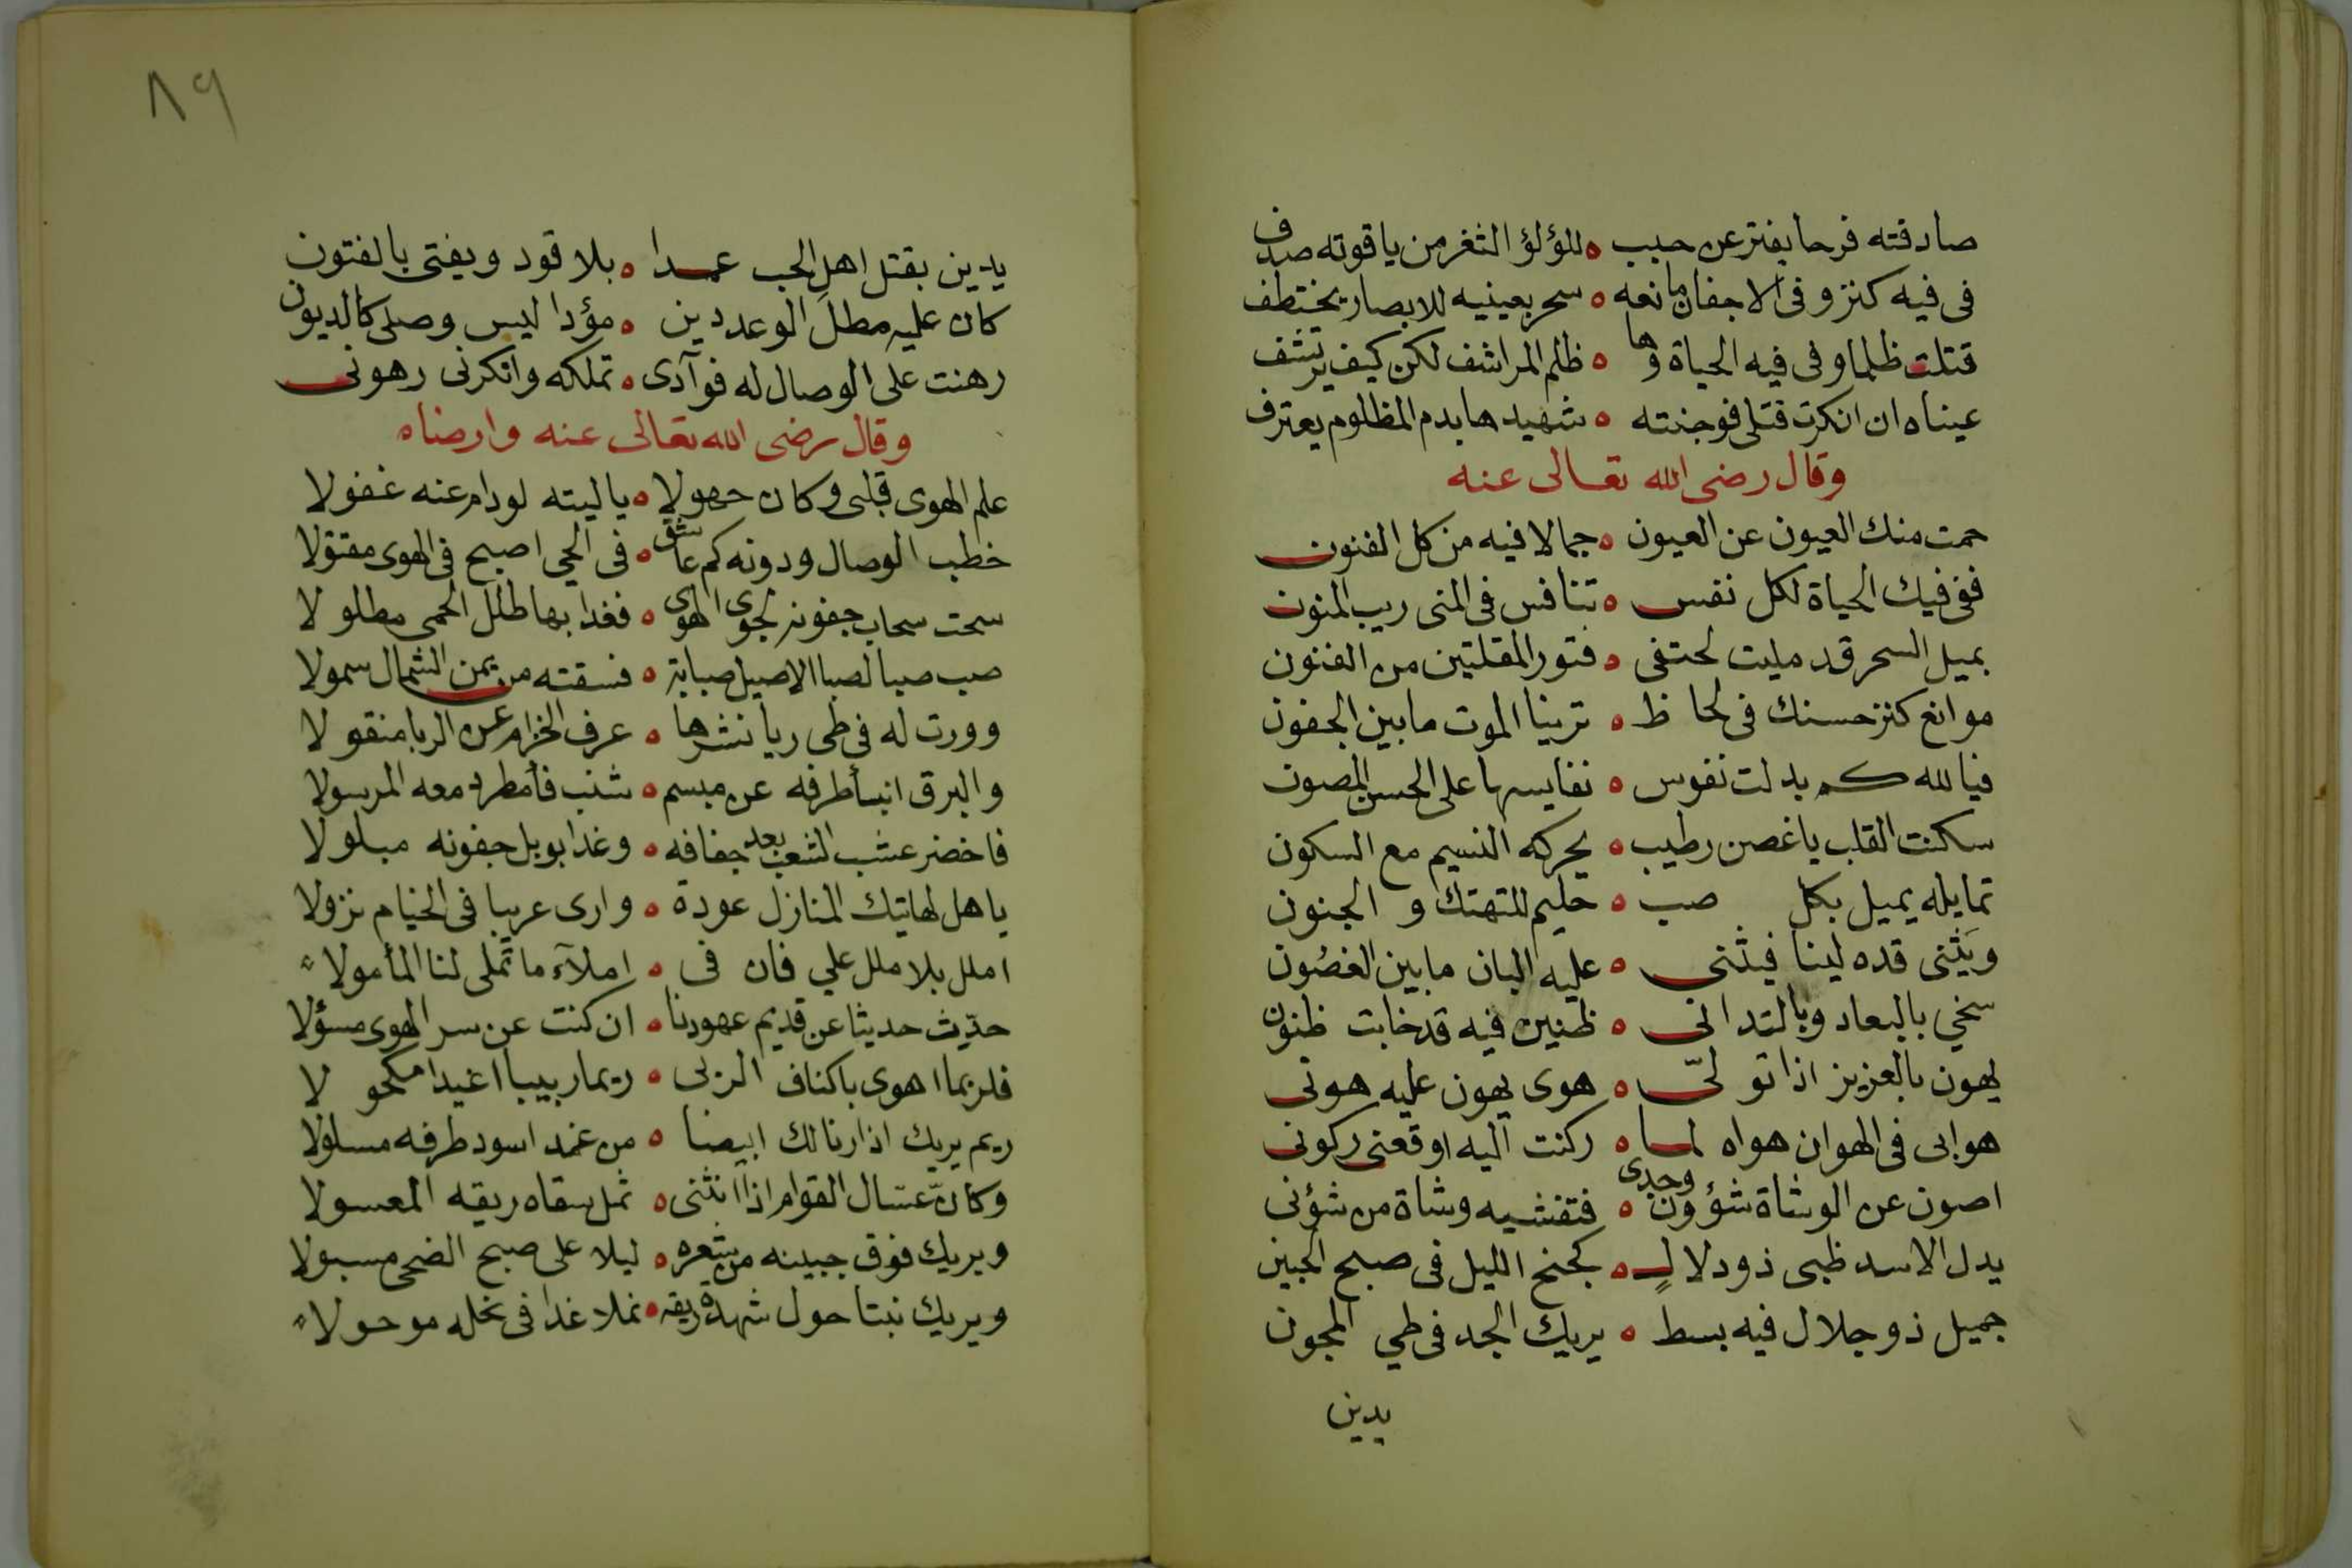 صادفته فرحا يفتر عن حبب ه للؤلؤ الثغر من ياقوته صدف
فى فيه كنز و فى الاجفان مانعه ه سحر بعينيه للابصار يختطف
قتلت ظلما و فى فيه الحياة وها ه ظلم المراشف لكن كيف يرتشف
عيناه ان انكرت قتلى فوجنته ه شهيدها بدم المظلوم يعترف
وقال رضى الله تعالى عنه
حمت منك العيون عن العيون ه جمالا فيه من كل الفنون
ففى فيك الحياة لكل نفس ه تنافس فى المنى ريب المنون
بميل السحر قد مليت لحتفى ه فتور المقلتين من الفنون
موانع كنز حسنك فى لحاظ ه ترينا الموت مابين الجفون
فيالله كم بدلت نفوس ه نفايسها على الحسن المصون
سكنت القلب ياغصن رطيب ه يحركه النسيم مع السكون
تمايله يميل بكل صب ه حليم للتهتك و الجنون
ويثنى قده لينا فيثنى ه عليه البان مابين الغصون
سخي بالبعاد وبالتدانى ه ظنين فيه قد خابت ظنون
يهون بالعزيز اذا تولى ه هوى يهون عليه هونى
هوابى فى الهوان هواه لما ه ركنت اليه اوقعنى ركونى
اصون عن الوشاة شؤون وجدى ه فتفشيه وشاة من شؤنى
يدل الاسد ظبى ذو دلال ه كجنح الليل فى صبح الجبين
جميل ذو جلال فيه بسط ه يريك الجد فى طي المجون
يدين
٨٩
يدين بقتل اهل الحب عمدا ه بلا قود ويفتى بالفتون
كان عليه مطل الوعد دين ه مؤدا ليس وصلى كالديون
رهنت على الوصال له فوآدى ه تملكه وانكرنى رهونى
وقال رضى الله تعالى عنه وارضاه
علم الهوى قلبى وكان جهولا ه ياليته لودام عنه غفولا
خطب الوصال ودونه كم عاشق ه فى الحي اصبح فى الهوى مقتولا
سحت سحاب جفونه لجوى الهوى ه فغدا بها طلل الحمى مطلولا
صب صبا لصبا الاصيل صبابة ه فسقته من يمن الشمال سمولا
وورت له فى طى ريا نشرها ه عرف الخزام عن الربا منقولا
والبرق انبأ طرفه عن مبسم ه شنب فأمطر دمعه المرسولا
فاخضر عشب الشعب بعد جفافه ه وغدا بوبل جفونه مبلولا
ياهل لهاتيك المنازل عودة ه وارى عريبا فى الخيام نزولا
املل بلا ملل علي فان فى ه املآء ما تملى لنا المأمولا
حدّث حديثا عن قديم عهودنا ه ان كنت عن سر الهوى مسؤلا
فلربما اهوى باكناف الربى ه ريما ربيبا اغيدا مكحولا
ريم يريك اذا رنا لك ابيضا ه من غمد اسود طرفه مسلولا
وكانّ عسّال القوام اذا انثنى ه ثمل سقاه ريقه المعسولا
ويريك فوق جبينه من شعره ه ليلا على صبح الضحى مسبولا
ويريك نبتا حول شهدة ريقه ه نملا غدا فى نحله موحولا